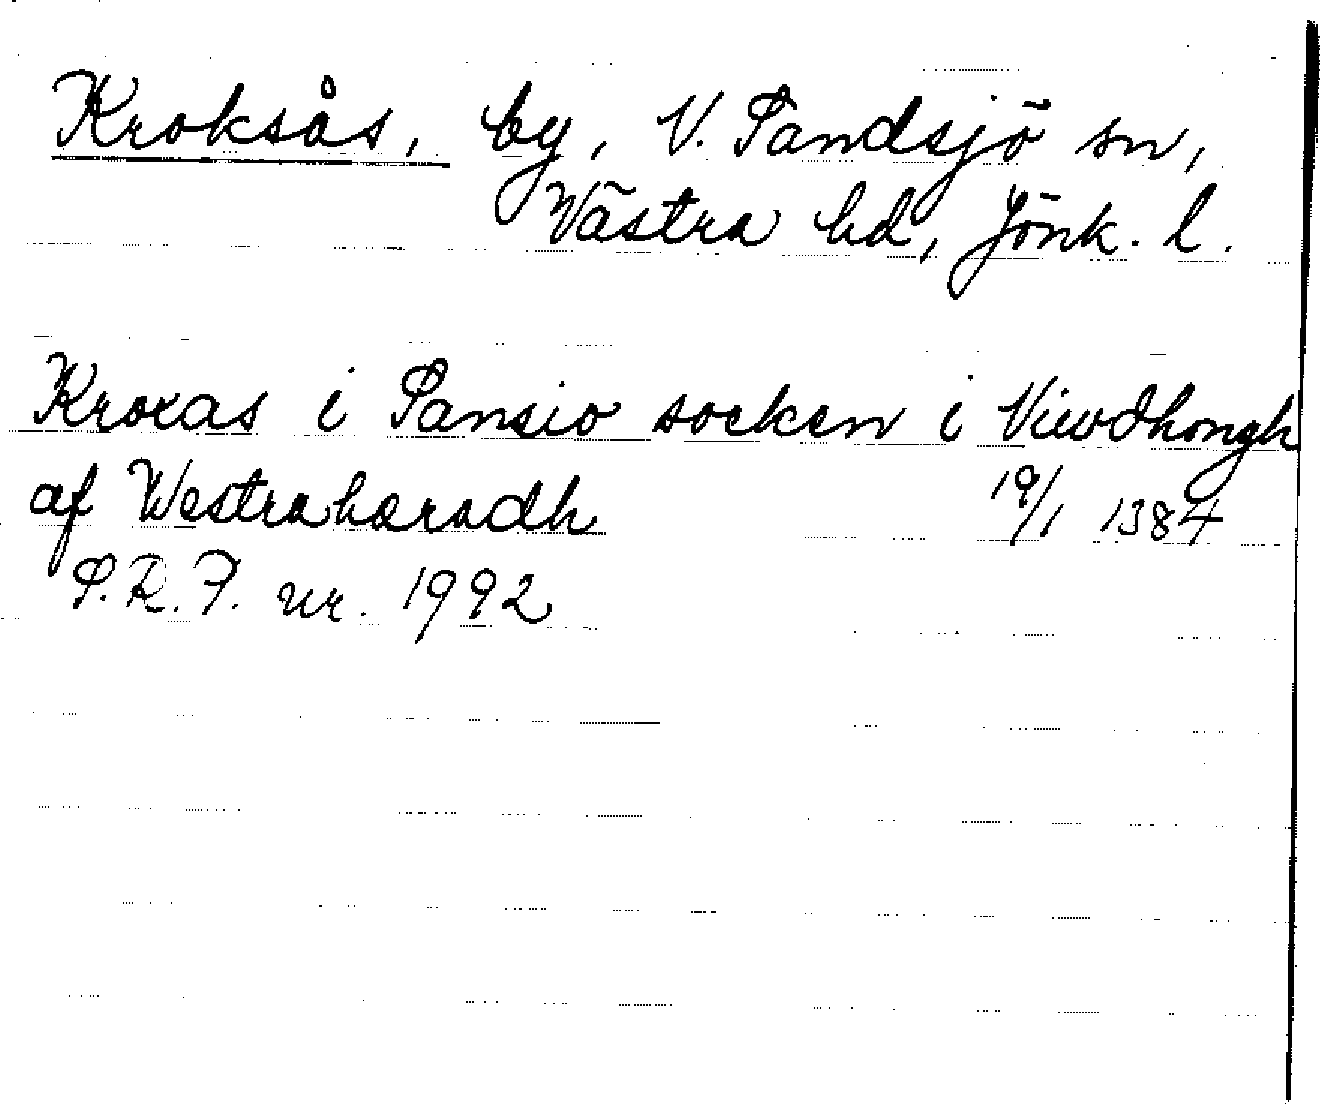 Kroksås, by, V. Sandsjö sn,
Västra hd, Jönk. l.
Kroxas i Sansio socken i Viwdhongh
af Westrahæradh 19/1 1384
S.R.P. nr. 1992